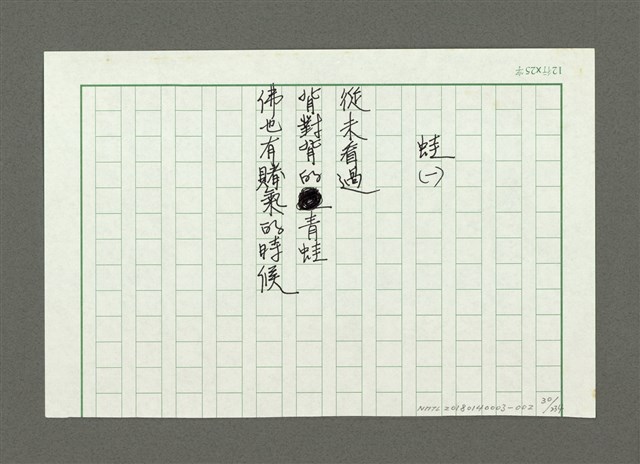 12行×25字
蛙
(一)
從未看過
背對背的青蛙
佛也有賭氣的時候
NMTL 20180140003-002
30/234